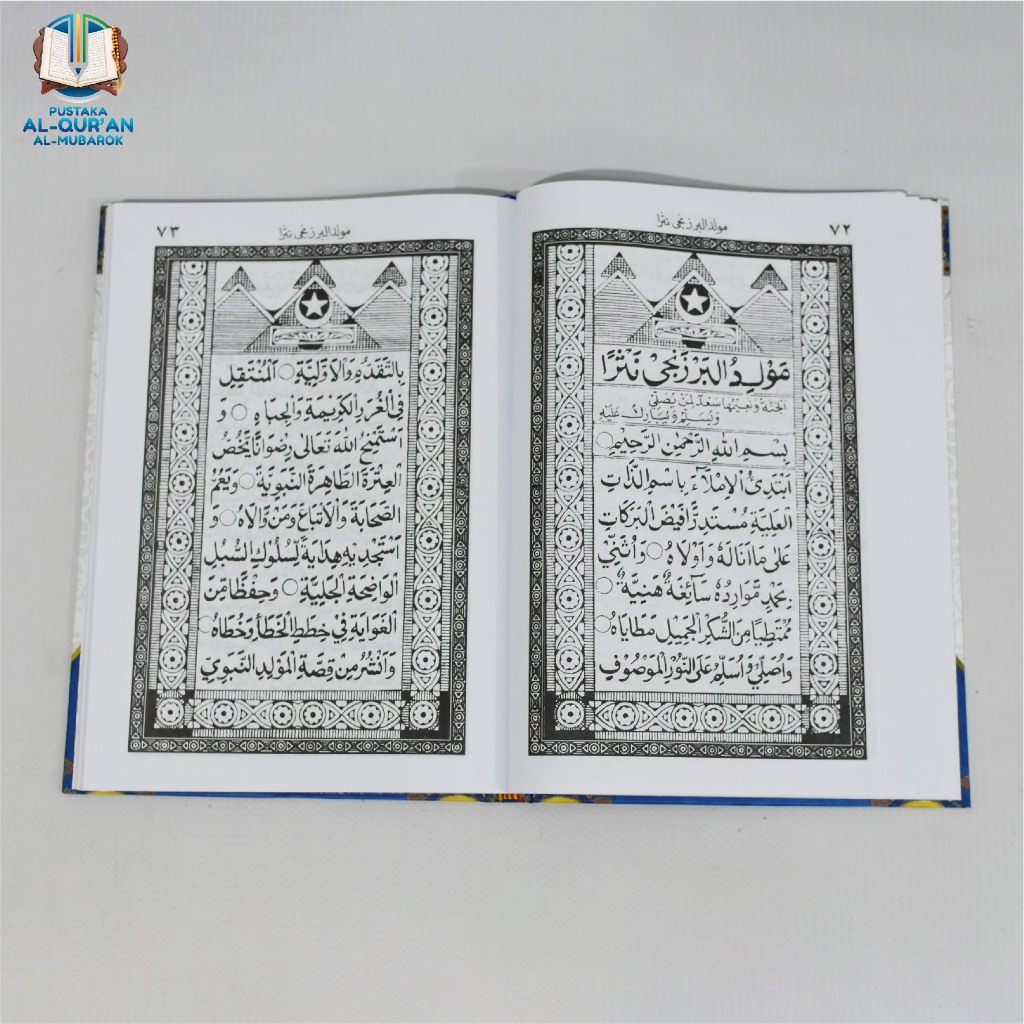 PUSTAKA
AL-QUR'AN
AL-MUBAROK
مولد البرزنجى نثرا
٧٢
مَوْلِدُ الْبَرْزَنْجِىْ نَثْرًا
اَلْجَنَّةُ وَنَعِيْمُهَا سَعْدٌ لِمَنْ يُصَلِّيْ
وَيُسَلِّمُ وَيُبَارِكُ عَلَيْهِ
بِسْمِ اللّٰهِ الرَّحْمٰنِ الرَّحِيْمِ
اَبْتَدِئُ الْاِمْلَاءَ بِاسْمِ الذَّاتِ
الْعَلِيَّةِ مُسْتَدِرًّا فَيْضَ الْبَرَكَاتِ
عَلٰى مَا اَنَالَهُ وَاَوْلَاهُ وَاُثَنِّيْ
بِحَمْدٍ مَّوَارِدُهُ سَآئِغَةٌ هَنِيَّةٌ
مُمْتَطِيًا مِنَ الشُّكْرِ الْجَمِيْلِ مَطَايَاهُ
وَاُصَلِّيْ وَاُسَلِّمُ عَلَى النُّوْرِ الْمَوْصُوْفِ
مولد البرزنجى نثرا
٧٣
بِالتَّقَدُّمِ وَالْاَوَّلِيَّةِ اَلْمُنْتَقِلِ
فِي الْغُرَرِ الْكَرِيْمَةِ وَالْجِبَاهِ وَ
اَسْتَمْنِحُ اللّٰهَ تَعَالٰى رِضْوَانًا يَّخُصُّ
الْعِتْرَةَ الطَّاهِرَةَ النَّبَوِيَّةَ وَيَعُمُّ
الصَّحَابَةَ وَالْاَتْبَاعَ وَمَنْ وَّالَاهُ وَ
اَسْتَجْدِيْهِ هِدَايَةً لِّسُلُوْكِ السُّبُلِ
الْوَاضِحَةِ الْجَلِيَّةِ وَحِفْظًا مِّنَ
الْغَوَايَةِ فِيْ خِطَطِ الْخَطَأِ وَخُطَاهُ
وَاَنْشُرُ مِنْ قِصَّةِ الْمَوْلِدِ النَّبَوِيِّ